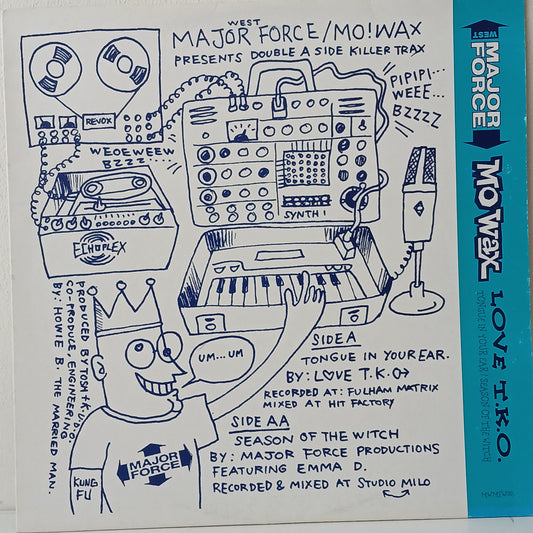 WEST
MAJOR FORCE/MO!WAX
PRESENTS DOUBLE A SIDE KILLER TRAX
PIPIPI...
WEEE...
BZZZZ
REVOX
WEOEWEEW
BZZZ....
SYNTH I
ECHOPLEX
PRODUCED BY TOSH + K.U.D.O.
CO-PRODUCE, ENGINEERING
BY: HOWIE B. THE MARRIED MAN.
UM...UM
MAJOR
FORCE
KUNG
FU
SIDE A
TONGUE IN YOUR EAR.
BY: LOVE T.K.O
RECORDED AT: FULHAM MATRIX
MIXED AT HIT FACTORY
SIDE AA
SEASON OF THE WITCH
BY: MAJOR FORCE PRODUCTIONS
FEATURING EMMA D.
RECORDED & MIXED AT STUDIO MILO
WEST
MAJOR
FORCE
MO WAX
LOVE T.K.O.
TONGUE IN YOUR EAR / SEASON OF THE WITCH